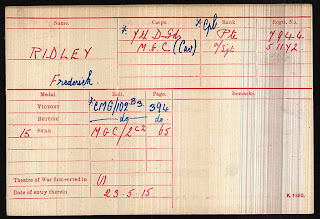 Name. Corps. Rank Regtl. No.
RIDLEY * 7th D. Gds * Cpl Pte 7944
M.G.C. (Cav) A/Sgt 51172
Frederick.
Medal. Roll. Page. Remarks.
VICTORY * CMG/102B3 394
BRITISH do do
15 STAR MGC/2C2 65
Theatre of War first served in (1)
Date of entry therein 23-5-15
K. 1380.